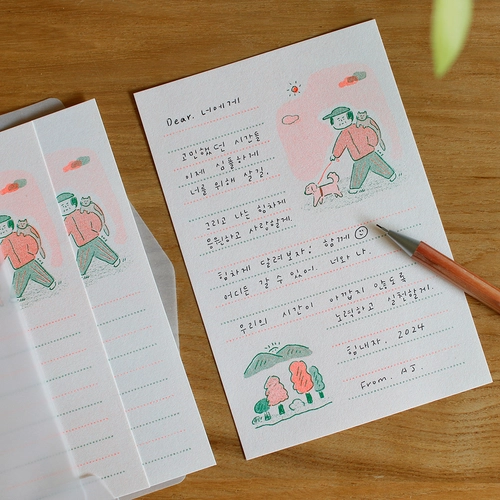 Dear. 너에게
고민했던 시간들
이제 심플하게
너를 위해 살길.
그리고 나는 힘차게
응원하고 사랑할게.
힘차게 달려보자! 함께
어디든 갈 수 있어. 너와 나.
우리의 시간이 아깝지 않도록
노력하고 실천할게.
힘내자. 2024
From. AJ